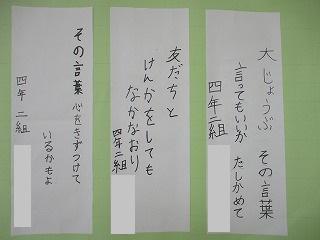 大じょうぶ その言葉
言ってもいいか たしかめて
四年二組
友だちと
けんかをしても
なかなおり
四年二組
その言葉 心をきずつけて
いるかもよ
四年二組